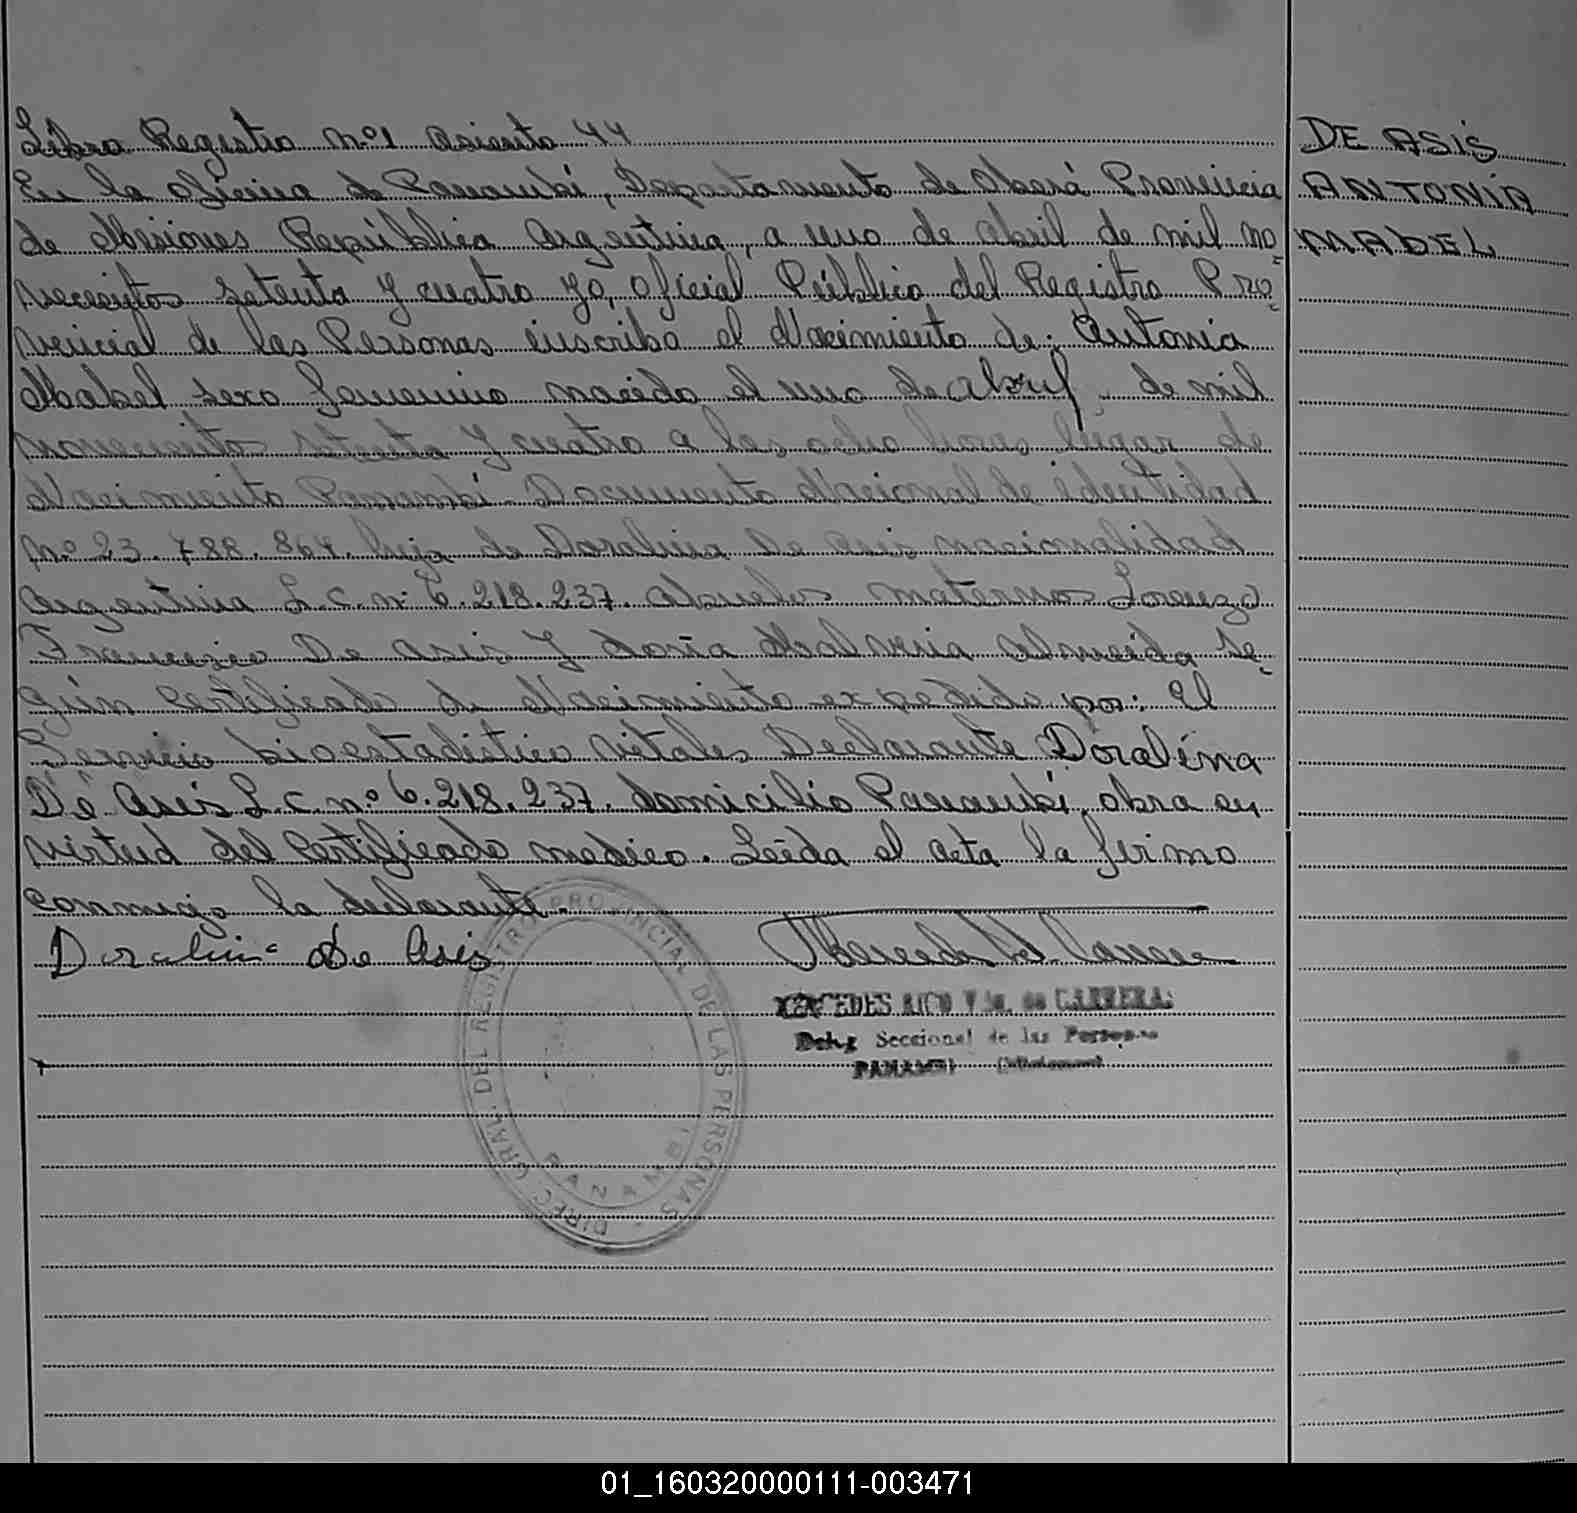 Libro Registro Nº1 asiento 44
En la oficina de Panambí, Departamento de Oberá Provincia
de Misiones República Argentina, a uno de abril de mil no
vecientos setenta y cuatro yo, oficial Público del Registro Pro
vincial de las Personas inscribo el Nacimiento de: Antonia
Mabel sexo femenino nacido el uno de abril de mil
novecientos setenta y cuatro a las ocho horas lugar de
Nacimiento Panambí Documento Nacional de identidad
Nº 23.788.864. hija de Doralina De Asis nacionalidad
argentina L.C. nº 6.218.237. abuelos maternos Lorenzo
Francisco De Asis y doña Malvina Almeida se
gún certificado de Nacimiento expedido por: el
Servicio bioestadístico vitales Declarante Doralina
De Asis L.C. nº 6.218.237. domicilio Panambí, obra en
virtud del Certificado medico. Leída el acta la firmo
conmigo la declarante.
Doralina De Asis
MERCEDES RICO Vda. de CARRERAS
Deleg Seccional de las Personas
PANAMBI (Misiones)
DIREC. GRAL. DEL REGISTRO PROVINCIAL DE LAS PERSONAS
PANAMBI
DE ASÍS
ANTONÍA
MABEL
01_160320000111-003471